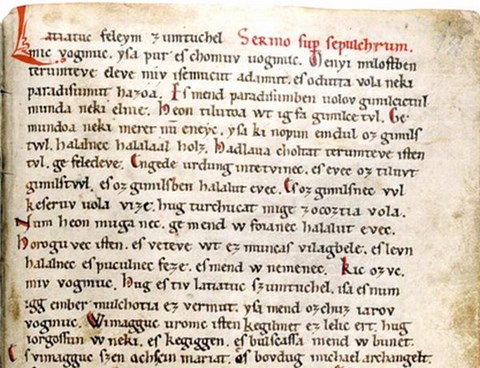 Latiatuc feleym zumtuchel Sermo sup sepulchrum.
mic vogmuc. yſa pur eſ chomuv uogmuc. Menyi miloſtben
terumteve eleve miv iſemucut adamut. eſ odutta vola neki
paradiſumut hazoa. Eſ mend paradiſumben uolov gimilcictul
munda neki elnie. Heon tilutoa wt ig fa gimilce tvl. Ge
mundoa neki meret nū eneyc. yſa ki nopun emdul oz gimilſ
twl. halalnec halalaal holz. Hadlaua choltat terumteve iſten
tvl. ge feledeve. Engede urdung intetvinec. eſ evec oz tiluvt
gimilſtwl. eſ oz gimilſben halalut evec. Eſ oz gimilſnec vvl
keſeruv uola vize. hug turchucat mige zocoztia vola.
Num heon muga nec. ge mend w foianec halalut evec.
Horogu vec iſten. eſ veteve wt ez muncaſ vilagbele. eſ levn
halalnec eſ puculnec feze. eſ mend w nemenec. Kic ozvc.
miv vogmuc. Hug eſ tiv latiatuv ſzumtuchel. iſa eſ num
igg ember mulchotia ez vermut. yſa mend ozchuz iarov
vogmuc. Wimagguc uromc iſten kegilmet ez lelic ert. hug
iorgoſſun w neki. eſ kegiggen. eſ bulſaſſa mend w bunet.
Eſ vimagguc ſzen achſcin mariat. eſ bovdug michael archangelt.